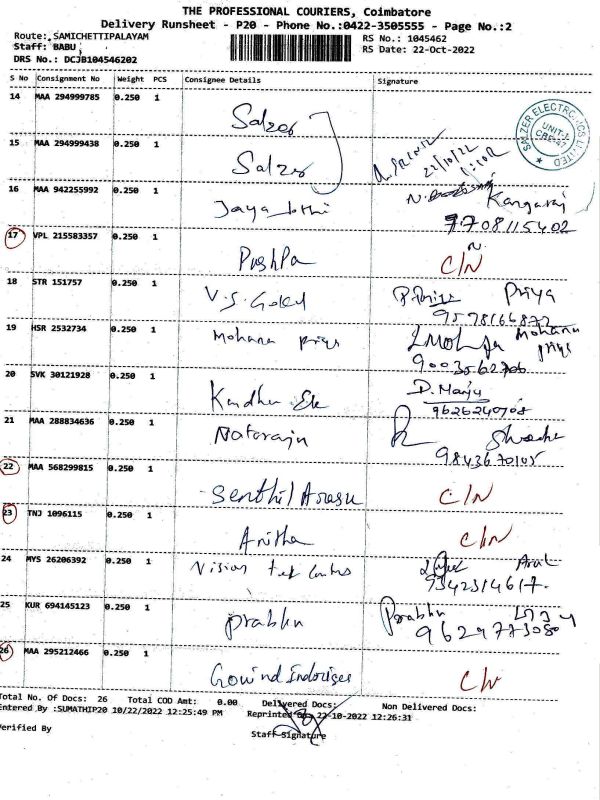 THE PROFESSIONAL COURIERS, Coimbatore
Delivery Runsheet - P20 - Phone No.:0422-3505555 - Page No.:2
Route: SAMICHETTIPALAYAM RS No.: 1045462
Staff: BABU RS Date: 22-Oct-2022
DRS No.: DCJB104546202
S No Consignment No Weight PCS Consignee Details Signature
14 MAA 294999785 0.250 1 Salzer
SALZER ELECTRONICS LIMITED UNIT-I
15 MAA 294999438 0.250 1 Salzer 22/10/22
16 MAA 942255992 0.250 1 Jaya Jothi Kangaraj
9708115402
17 VPL 215583357 0.250 1 Pushpa C/N
18 STR 151757 0.250 1 V.S. Gokul Priya
9578166872
19 HSR 2532734 0.250 1 Mohana priya Mohana priya
9003562706
20 SVK 30121928 0.250 1 D. Manju
9626240708
21 MAA 288834636 0.250 1 Nataraju
9843670105
22 MAA 568299815 0.250 1 Senthil Arasu C/N
23 TNJ 1096115 0.250 1 Anitha C/N
24 MYS 26206392 0.250 1 Vision Arul
9342314617.
25 KUR 694145123 0.250 1 prabhu Prabhu
9629773080
26 MAA 295212466 0.250 1 Govind C/N
Total No. Of Docs: 26 Total COD Amt: 0.00 Delivered Docs: Non Delivered Docs:
Entered By :SUMATHIP20 10/22/2022 12:25:49 PM Reprinted 22-10-2022 12:26:31
Verified By Staff Signature